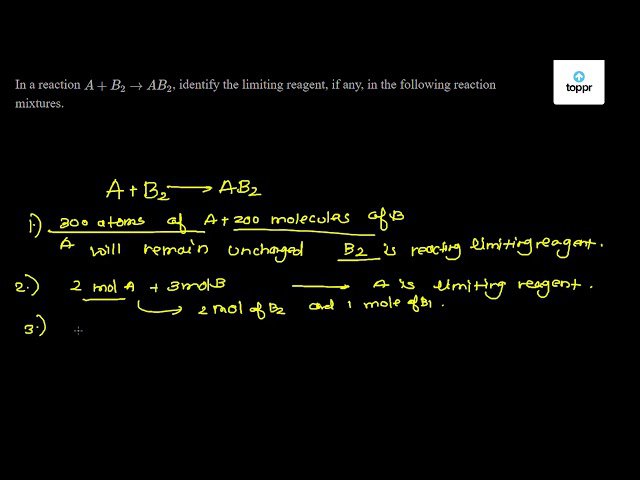 In a reaction A + B₂ → AB₂, identify the limiting reagent, if any, in the following reaction
mixtures.
toppr
A + B₂ → AB₂
1.) 300 atoms of A + 200 molecules of B
A will remain unchanged B₂ is reacting limiting reagent.
2.) 2 mol A + 3 mol B → A is limiting reagent.
→ 2 mol of B₂ and 1 mole of B₁.
3.)